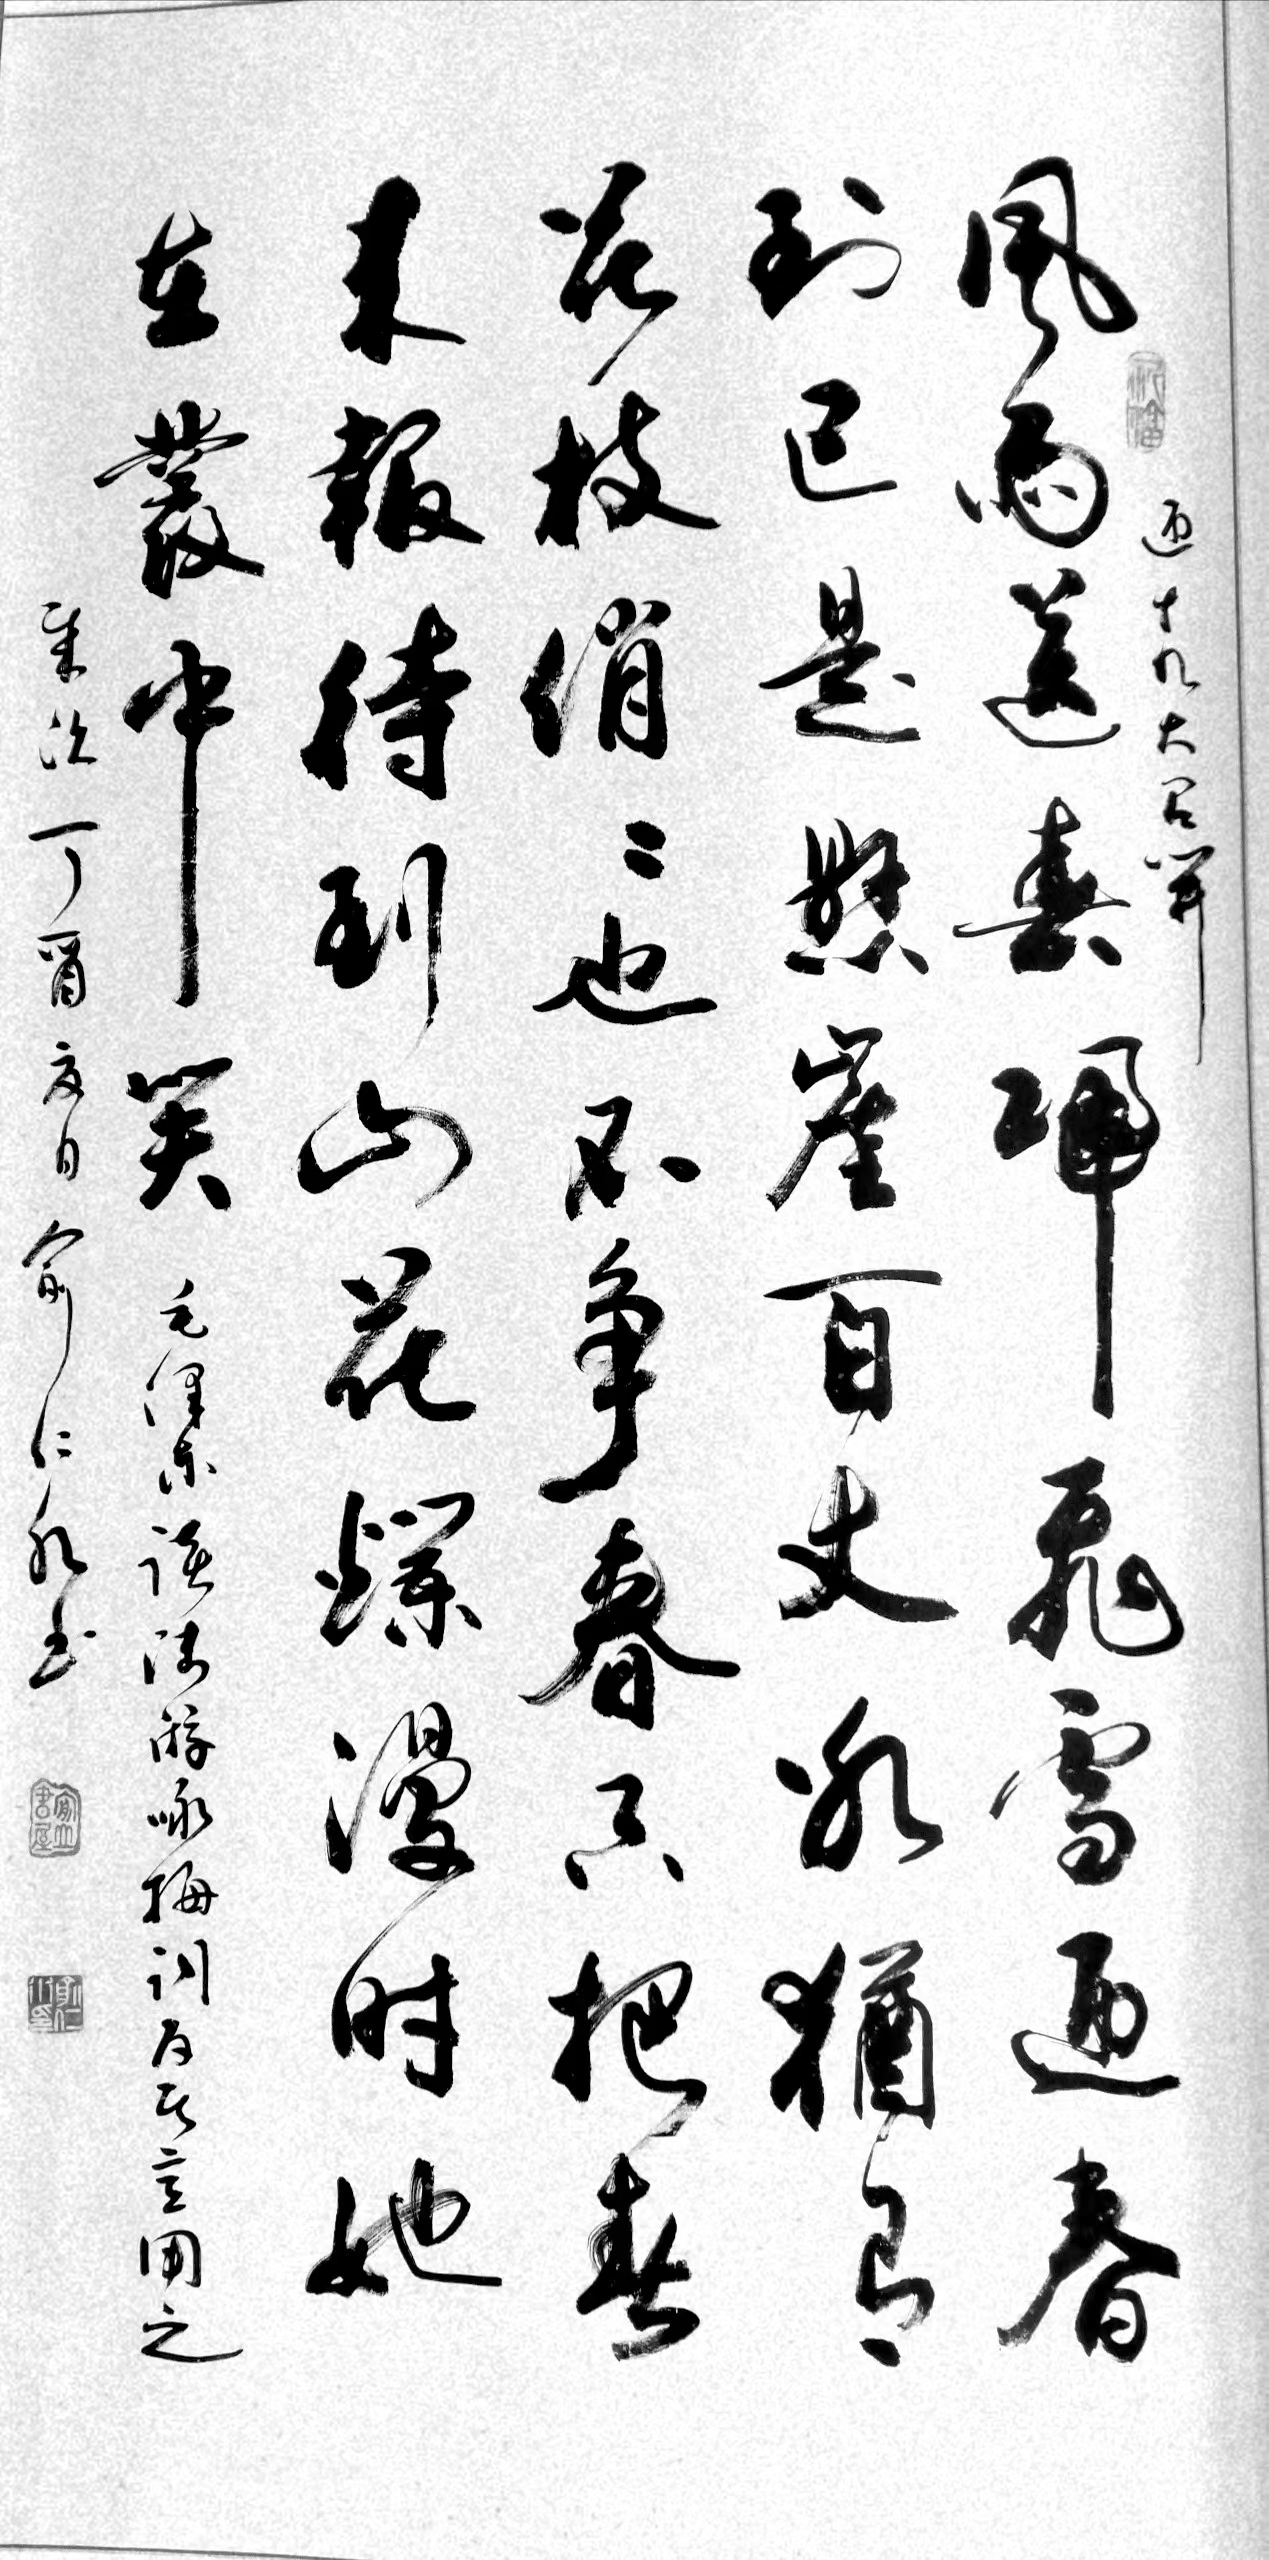 迎十九大召開
風雨送春歸飛雪迎春
到已是懸崖百丈冰猶有
花枝俏〻也不争春只把春
来報待到山花爛漫时她
在叢中笑 毛澤东讀陸游咏梅詞反其意用之
歲次丁酉夏日俞仁书